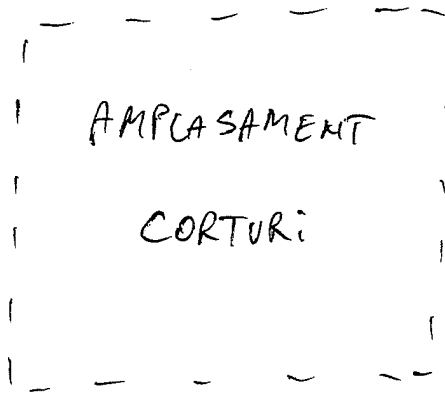 AMPLASAMENT
CORTURi